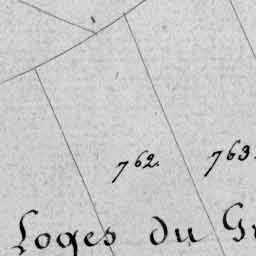 762.
763.
Loges du